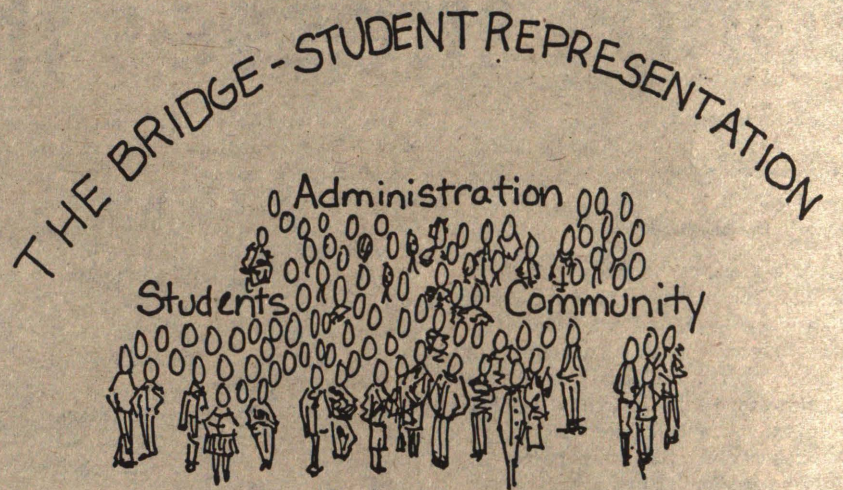 THE BRIDGE - STUDENT REPRESENTATION
Administration
Students
Community